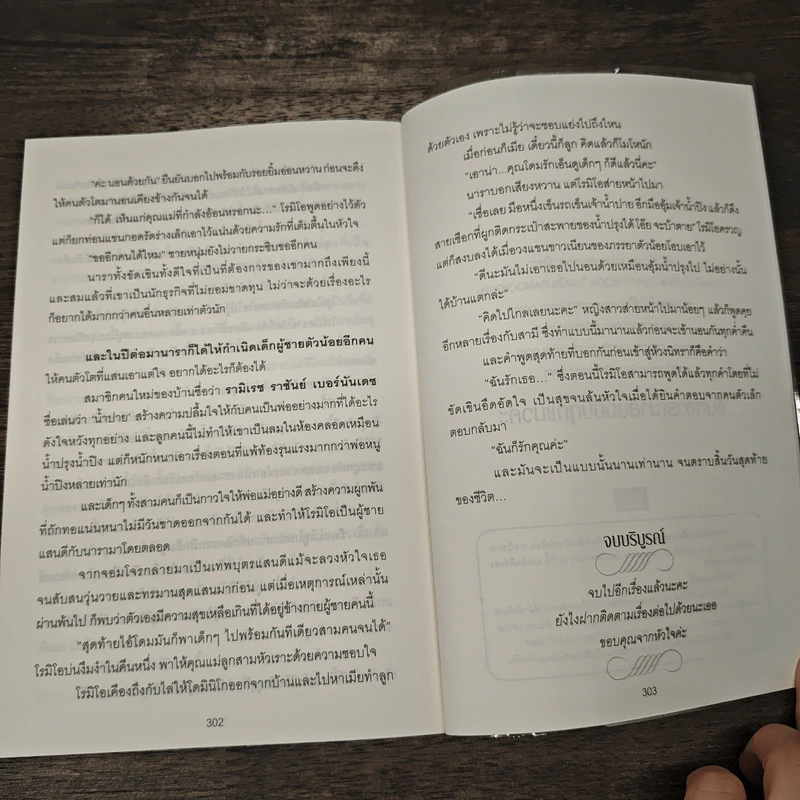 "ค่ะ นอนด้วยกัน" ยืนยันบอกไปพร้อมกับรอยยิ้มอ่อนหวาน ก่อนจะดึง
ให้คนตัวโตมานอนเคียงข้างกันจนได้
"ก็ได้ เห็นแก่คุณแม่ที่กำลังอ้อนหรอกนะ..." โรมิโอพูดอย่างไว้ตัว
แต่ก็ยกท่อนแขนกอดรัดร่างเล็กเอาไว้แน่นด้วยความรักที่เต็มตื้นในหัวใจ
"ขออีกคนได้ไหม" ชายหนุ่มยังไม่วายกระซิบขออีกคน
นาราทั้งขัดเขินทั้งดีใจที่เป็นที่ต้องการของเขามากถึงเพียงนี้
และสมแล้วที่เขาเป็นนักธุรกิจที่ไม่ยอมขาดทุน ไม่ว่าจะด้วยเรื่องอะไร
ก็อยากได้มากกว่าคนอื่นหลายเท่าตัวนัก
และในปีต่อมานาราก็ได้ให้กำเนิดเด็กผู้ชายตัวน้อยอีกคน
ให้คนตัวโตที่แสนเอาแต่ใจ อยากได้อะไรก็ต้องได้
สมาชิกคนใหม่ของบ้านชื่อว่า รามิเรซ ราชันย์ เบอร์นันเดซ
ชื่อเล่นว่า 'น้ำปาย' สร้างความปลื้มใจให้กับคนเป็นพ่ออย่างมากที่ได้อะไร
ดังใจหวังทุกอย่าง และลูกคนนี้ไม่ทำให้เขาเป็นลมในห้องคลอดเหมือน
น้ำปรุงน้ำปิง แต่ก็หนักหนาเอาเรื่องตอนที่แพ้ท้องรุนแรงมากกว่าพ่อหนู
น้ำปิงหลายเท่านัก
และเด็กๆ ทั้งสามคนก็เป็นกาวใจให้พ่อแม่อย่างดี สร้างความผูกพัน
ที่ถักทอแน่นหนาไม่มีวันขาดออกจากกันได้ และทำให้โรมิโอเป็นผู้ชาย
แสนดีกับนารามาโดยตลอด
จากจอมโจรกลายมาเป็นเทพบุตรแสนดีแม้จะลวงหัวใจเธอ
จนสับสนวุ่นวายและทรมานสุดแสนมาก่อน แต่เมื่อเหตุการณ์เหล่านั้น
ผ่านพ้นไป ก็พบว่าตัวเองมีความสุขเหลือเกินที่ได้อยู่ข้างกายผู้ชายคนนี้
"สุดท้ายไอ้โดมมันก็พาเด็กๆ ไปพร้อมกันทีเดียวสามคนจนได้"
โรมิโอบ่นงึมงำในคืนหนึ่ง พาให้คุณแม่ลูกสามหัวเราะด้วยความชอบใจ
โรมิโอเคืองถึงกับไล่ให้โดมินิโกออกจากบ้านและไปหาเมียทำลูก
302
ด้วยตัวเอง เพราะไม่รู้ว่าจะชอบแย่งไปถึงไหน
เมื่อก่อนก็เมีย เดี๋ยวนี้ก็ลูก คิดแล้วก็โมโหนัก
"เอาน่า...คุณโดมรักเอ็นดูเด็กๆ ก็ดีแล้วนี่คะ"
นาราบอกเสียงหวาน แต่โรมิโอส่ายหน้าไปมา
"เชื่อเลย มือหนึ่งเข็นรถเข็นเจ้าน้ำปาย อีกมืออุ้มเจ้าน้ำปิง แล้วก็ดึง
สายเชือกที่ผูกติดกระเป๋าสะพายของน้ำปรุงได้ โอ๊ย จะบ้าตาย" โรมิโอครวญ
แต่ก็สงบลงได้เมื่อวงแขนขาวเนียนของภรรยาตัวน้อยโอบเอาไว้
"ดีนะมันไม่เอาเธอไปนอนด้วยเหมือนอุ้มน้ำปรุงไป ไม่อย่างนั้น
ได้บ้านแตกล่ะ"
"คิดไปไกลเลยนะคะ" หญิงสาวส่ายหน้าไปมาน้อยๆ แล้วก็พูดคุย
อีกหลายเรื่องกับสามี ซึ่งทำแบบนี้มานานแล้วก่อนจะเข้านอนกันทุกค่ำคืน
และคำพูดสุดท้ายที่บอกกันก่อนเข้าสู่ห้วงนิทราก็คือคำว่า
"ฉันรักเธอ..." ซึ่งตอนนี้โรมิโอสามารถพูดได้แล้วทุกคำโดยที่ไม่
ขัดเขินอึดอัดใจ เป็นสุขจนล้นหัวใจเมื่อได้ยินคำตอบจากคนตัวเล็ก
ตอบกลับมา
"ฉันก็รักคุณค่ะ"
และมันจะเป็นแบบนั้นนานเท่านาน จนตราบสิ้นวันสุดท้าย
ของชีวิต...
จบบริบูรณ์
จบไปอีกเรื่องแล้วนะคะ
ยังไงฝากติดตามเรื่องต่อไปด้วยนะเธอ
ขอบคุณจากหัวใจค่ะ
303